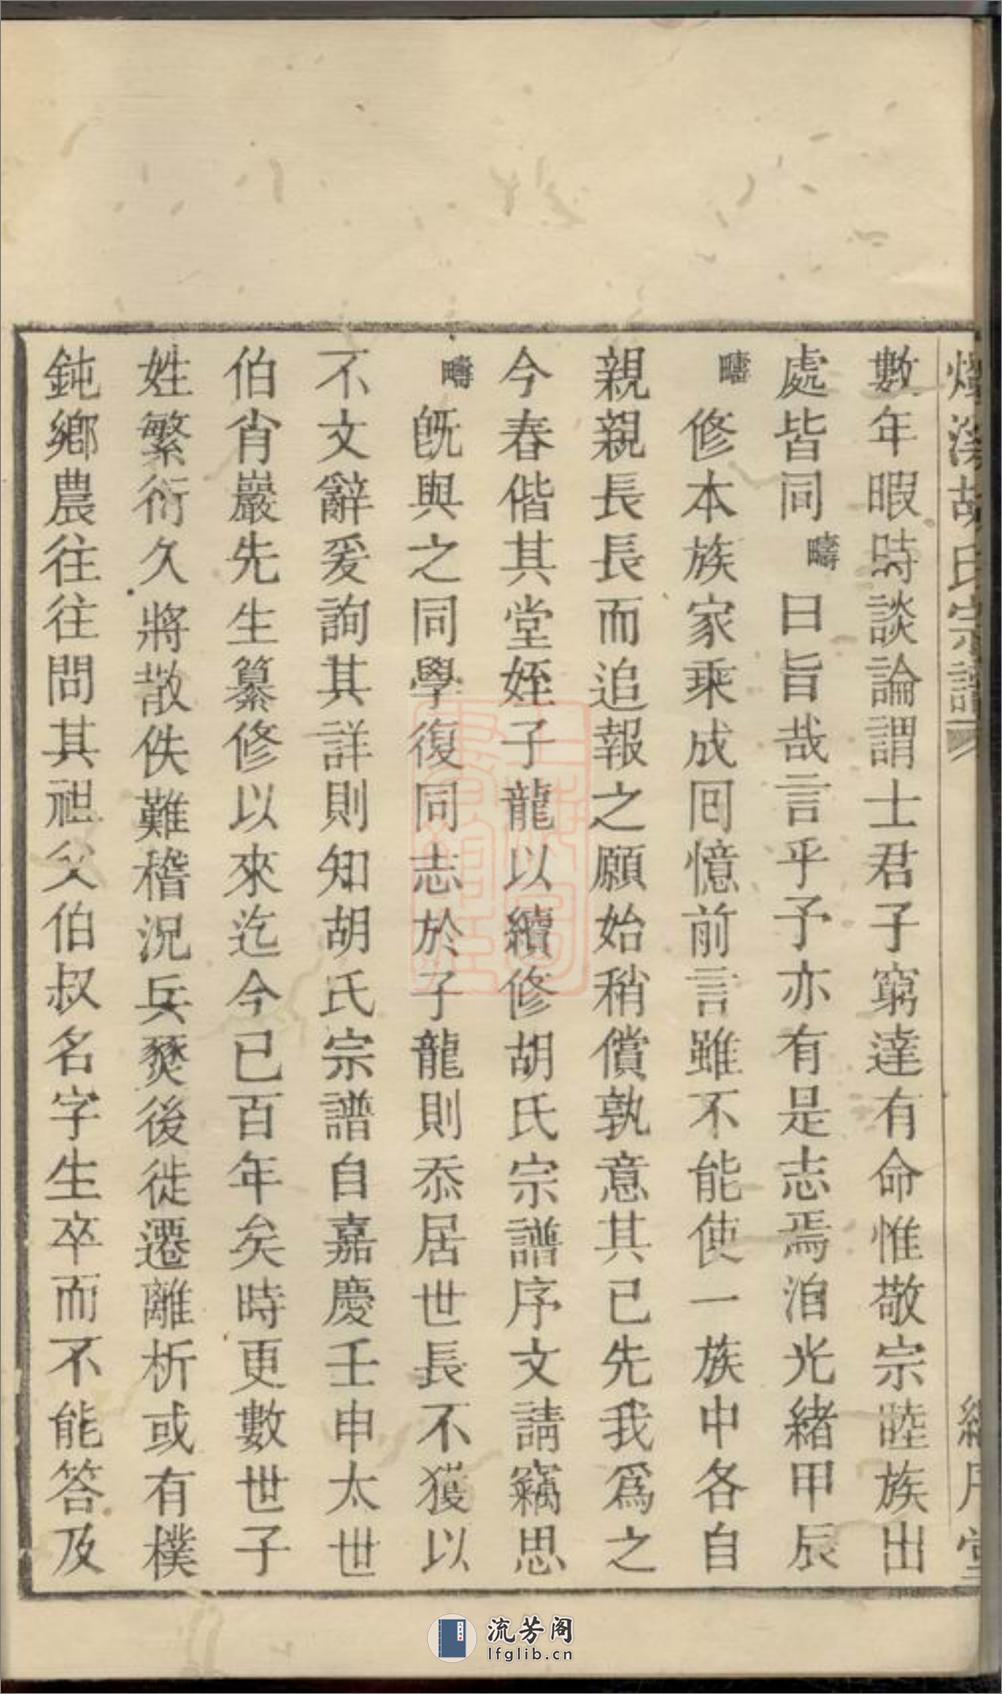 胡氏宗譜
數年暇時談論謂士君子窮達有命惟敬宗睦族出
處皆同疇曰旨哉言乎予亦有是志焉洎光緒甲辰
疇修本族家乘成囘憶前言雖不能使一族中各自
親親長長而追報之願始稍償孰意其已先我爲之
今春偕其堂姪子龍以續修胡氏宗譜序文請竊思
疇旣與之同學復同志於子龍則忝居世長不獲以
不文辭爰詢其詳則知胡氏宗譜自嘉慶壬申太世
伯肖巖先生纂修以來迄今已百年矣時更數世子
姓繁衍久將散佚難稽況兵燹後徙遷離析或有樸
鈍鄉農往往問其祖父伯叔名字生卒而不能答及
流芳阁
lfglib.cn